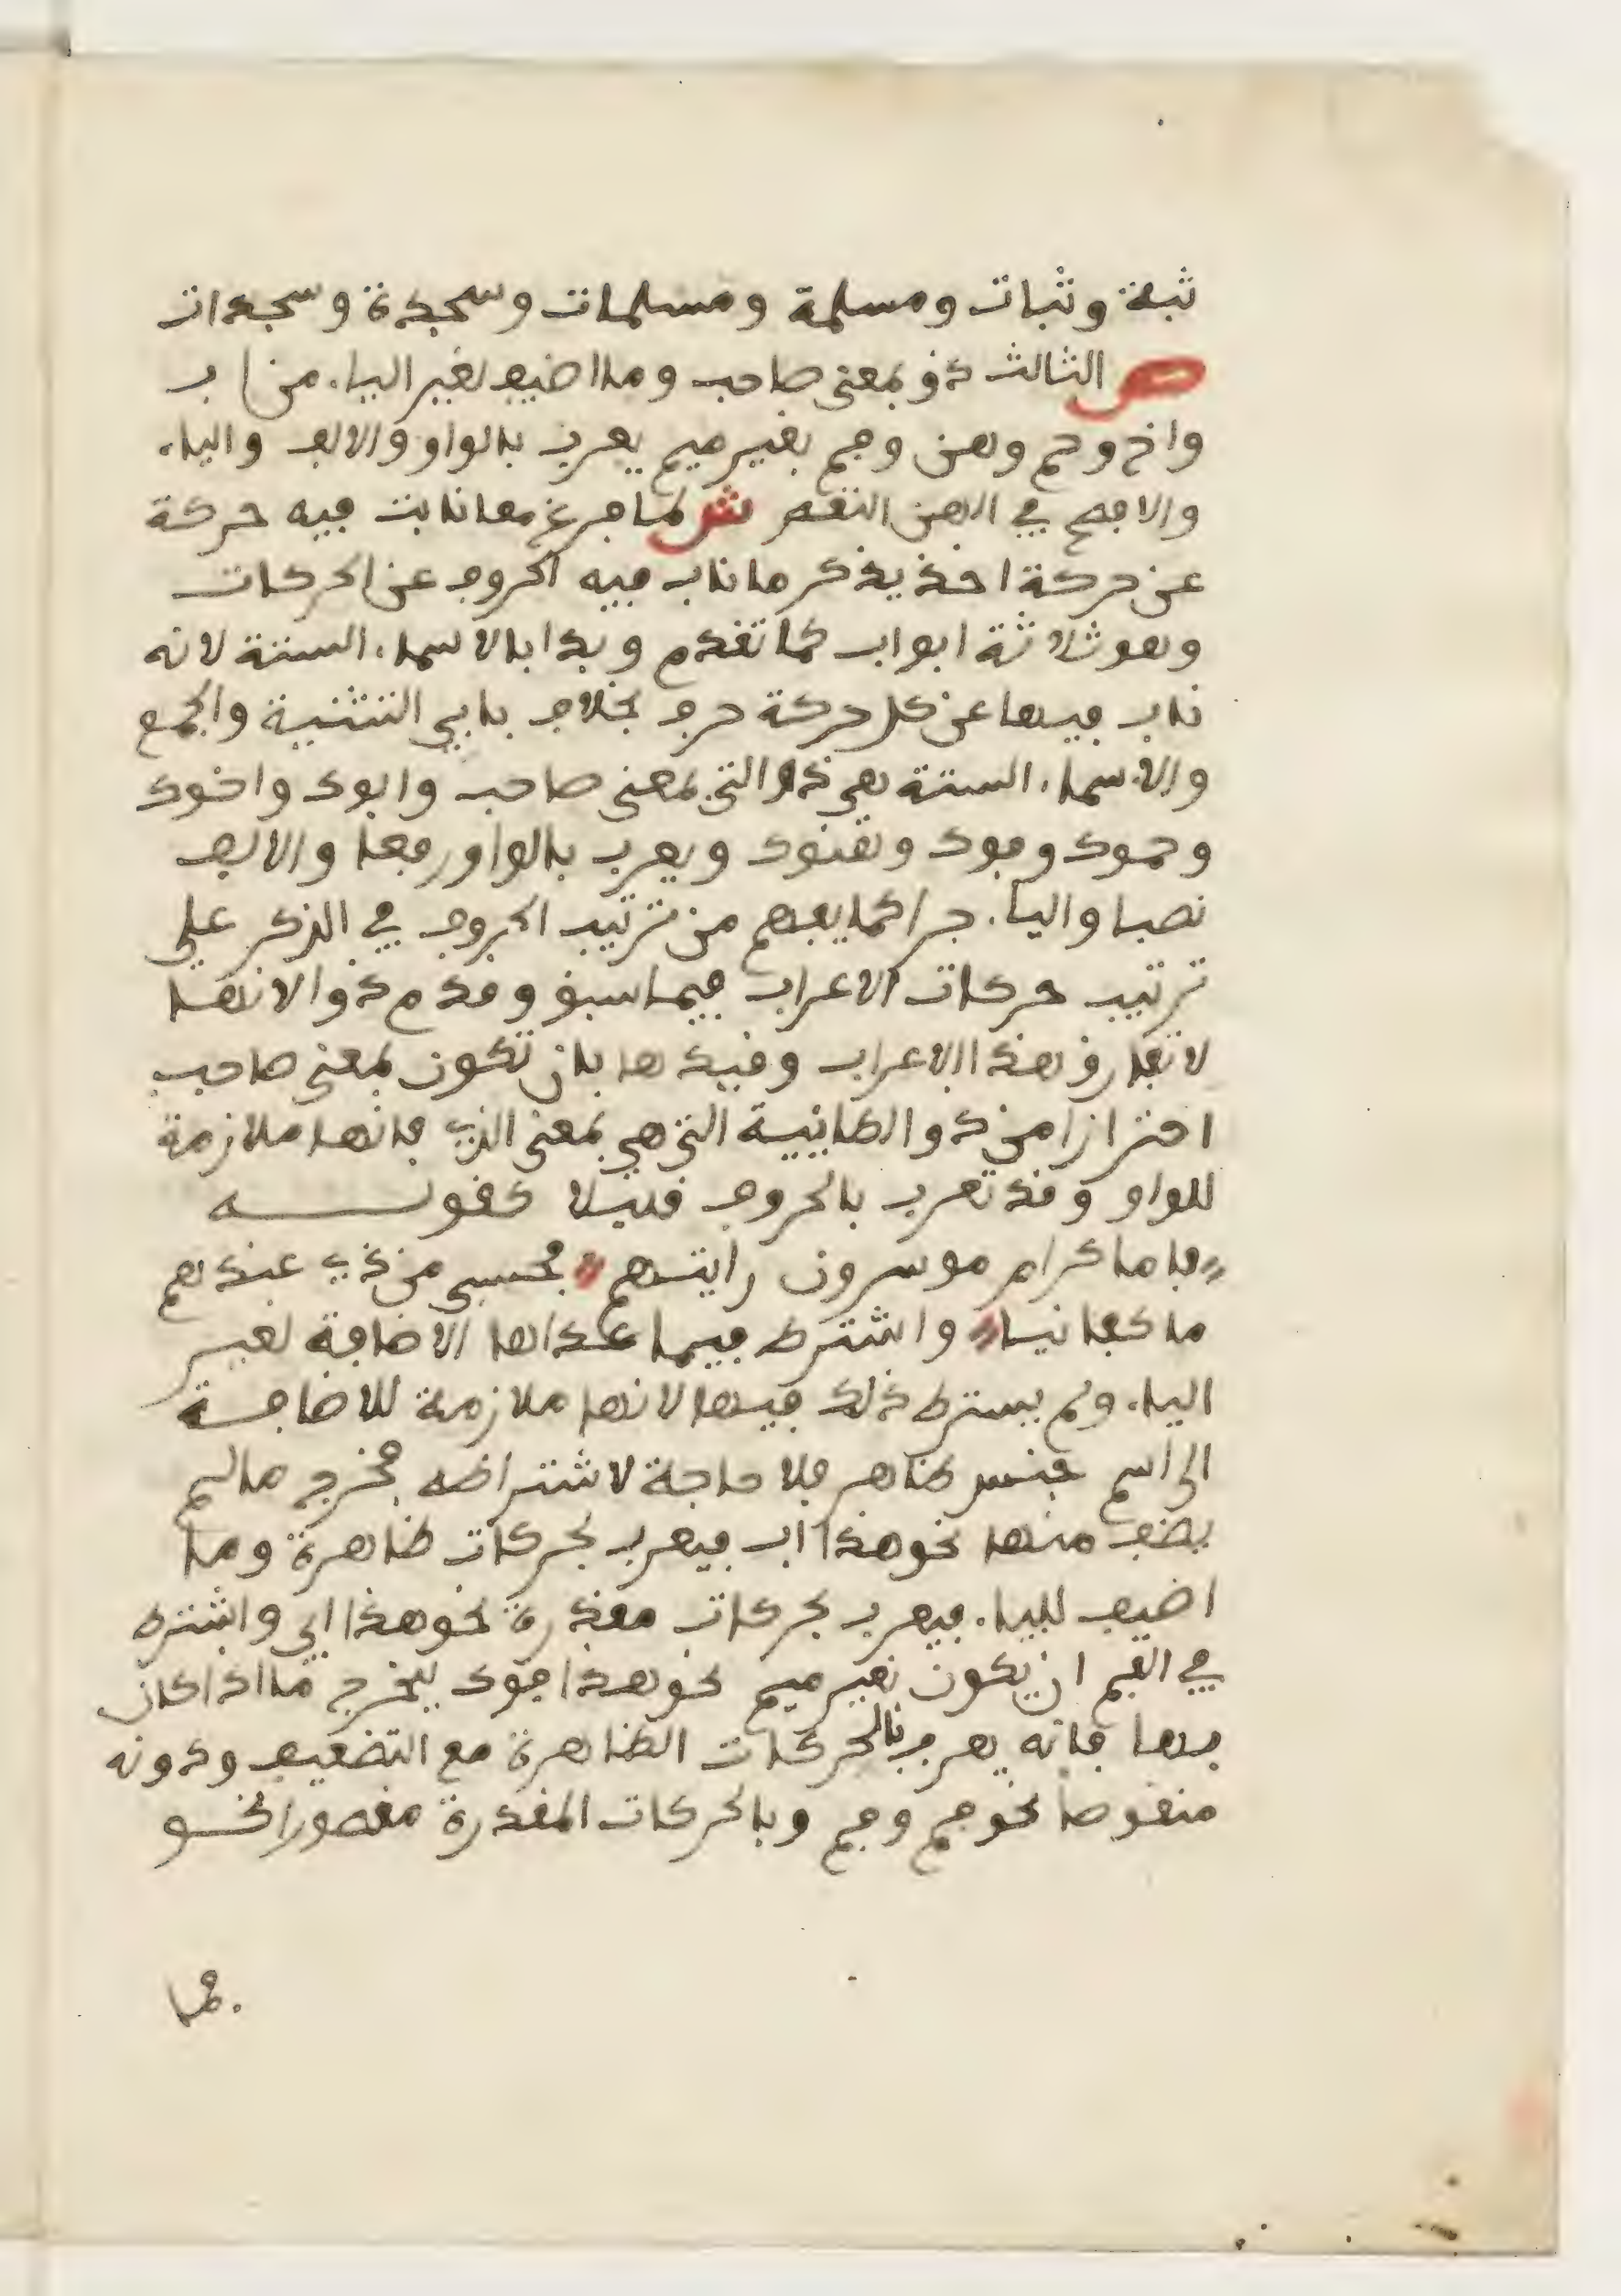 ثبة وثبات ومسلمة ومسلمات وسجدة وسجدات
ص الثالث ذو بمعنى صاحب وما اضيف لغير الياء من اب
واخ وحم وهن وفم بغير ميم يعرب بالواو والالف والياء
والافصح في الهن النقص ش لما فرغ مما نابت فيه حركة
عن حركة اخذ يذكر ما ناب فيه الحروف عن الحركات
وهو ثلاثة ابواب كما تقدم وبدا بالاسماء الستة لانه
ناب فيها عن كل حركة حرف بخلاف بابي التثنية والجمع
والاسماء الستة هي ذو التي بمعنى صاحب وابوك واخوك
وحموك وفوك وهنوك ويعرب بالواو رفعا والالف
نصبا والياء جرا كما يفهم من ترتيب الحروف في الذكر على
ترتيب حركات الاعراب فيما سبق وقدم ذو لانها
لا تفارق هذا الاعراب وقيدها بان تكون بمعنى صاحب
احترازا من ذو الطائية التي هي بمعنى الذي فانها ملازمة
للواو وقد تعرب بالحروف قليلا كقوله
فاما كرام موسرون رايتهم فحسبي من ذي عندهم
ما كفانيا واشترط فيما عداها الاضافة لغير
الياء ولم يشترط ذلك فيها لانها ملازمة للاضافة
الى اسم جنس ظاهر فلا حاجة لاشتراطه فخرج ما لم
يضف منها نحو هذا اب فيعرب بحركات ظاهرة وما
اضيف للياء فيعرب بحركات مقدرة نحو هذا ابي واشترط
في الفم ان يكون بغير ميم نحو هذا فوك ليخرج ما اذا كان
بها فانه يعرب بالحركات الظاهرة مع التضعيف ودونه
منقوصا نحو فم وفم وبالحركات المقدرة مقصورا نحو
فما